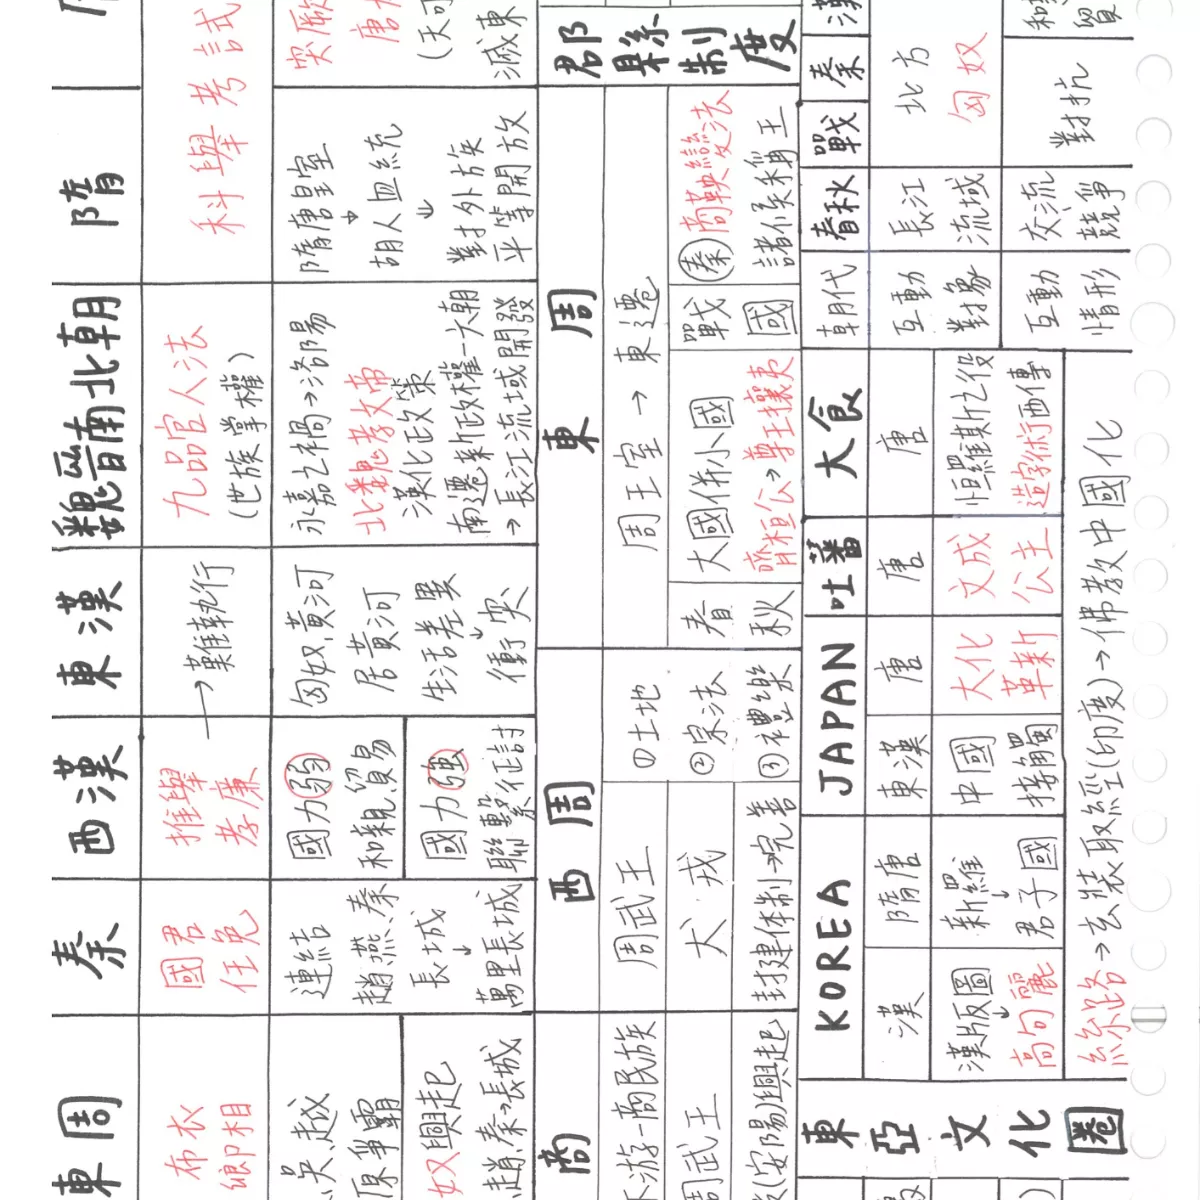 東周
秦
西漢
東漢
魏晉南北朝
隋
布衣
卿相
國君
任免
推舉
孝廉
→難執行
九品官人法
(世族掌權)
科舉考試
吳、越
爭霸
奴興起
趙、秦→長城
連結
趙、燕、秦
長城
↓
萬里長城
國力弱
和親、貿易
國力強
聯繫征討
匈奴、黃河
居黃河
生活差異
↓
衝突
永嘉之禍→洛陽
北魏孝文帝
漢化政策
南遷新政權-六朝
→長江流域開發
隋唐皇室
↓
胡人血統
↓
對外族
平等開放
突厥
唐
(天可
滅東
商
西周
東周
郡縣制度
游-商民族
周武王
(安陽)興起
周武王
犬戎
封建体制→完善
①土地
②宗法
③禮樂
周王室→東遷
春秋
大國併小國
齊桓公→尊王攘夷
戰國
秦 商鞅變法
諸侯稱王
東亞文化圈
KOREA
JAPAN
吐蕃
大食
漢
隋唐
東漢
唐
唐
唐
漢版圖
↓
高句麗
新羅
↓
君子國
中國
接觸
大化
革新
文成
公主
怛羅斯之役
造字術西傳
絲路→玄奘取經(印度)→佛教中國化
朝代
春秋
戰
秦
漢
互動
對象
長江
流域
北方
匈奴
互動
情形
交流
競爭
對抗
和
貿